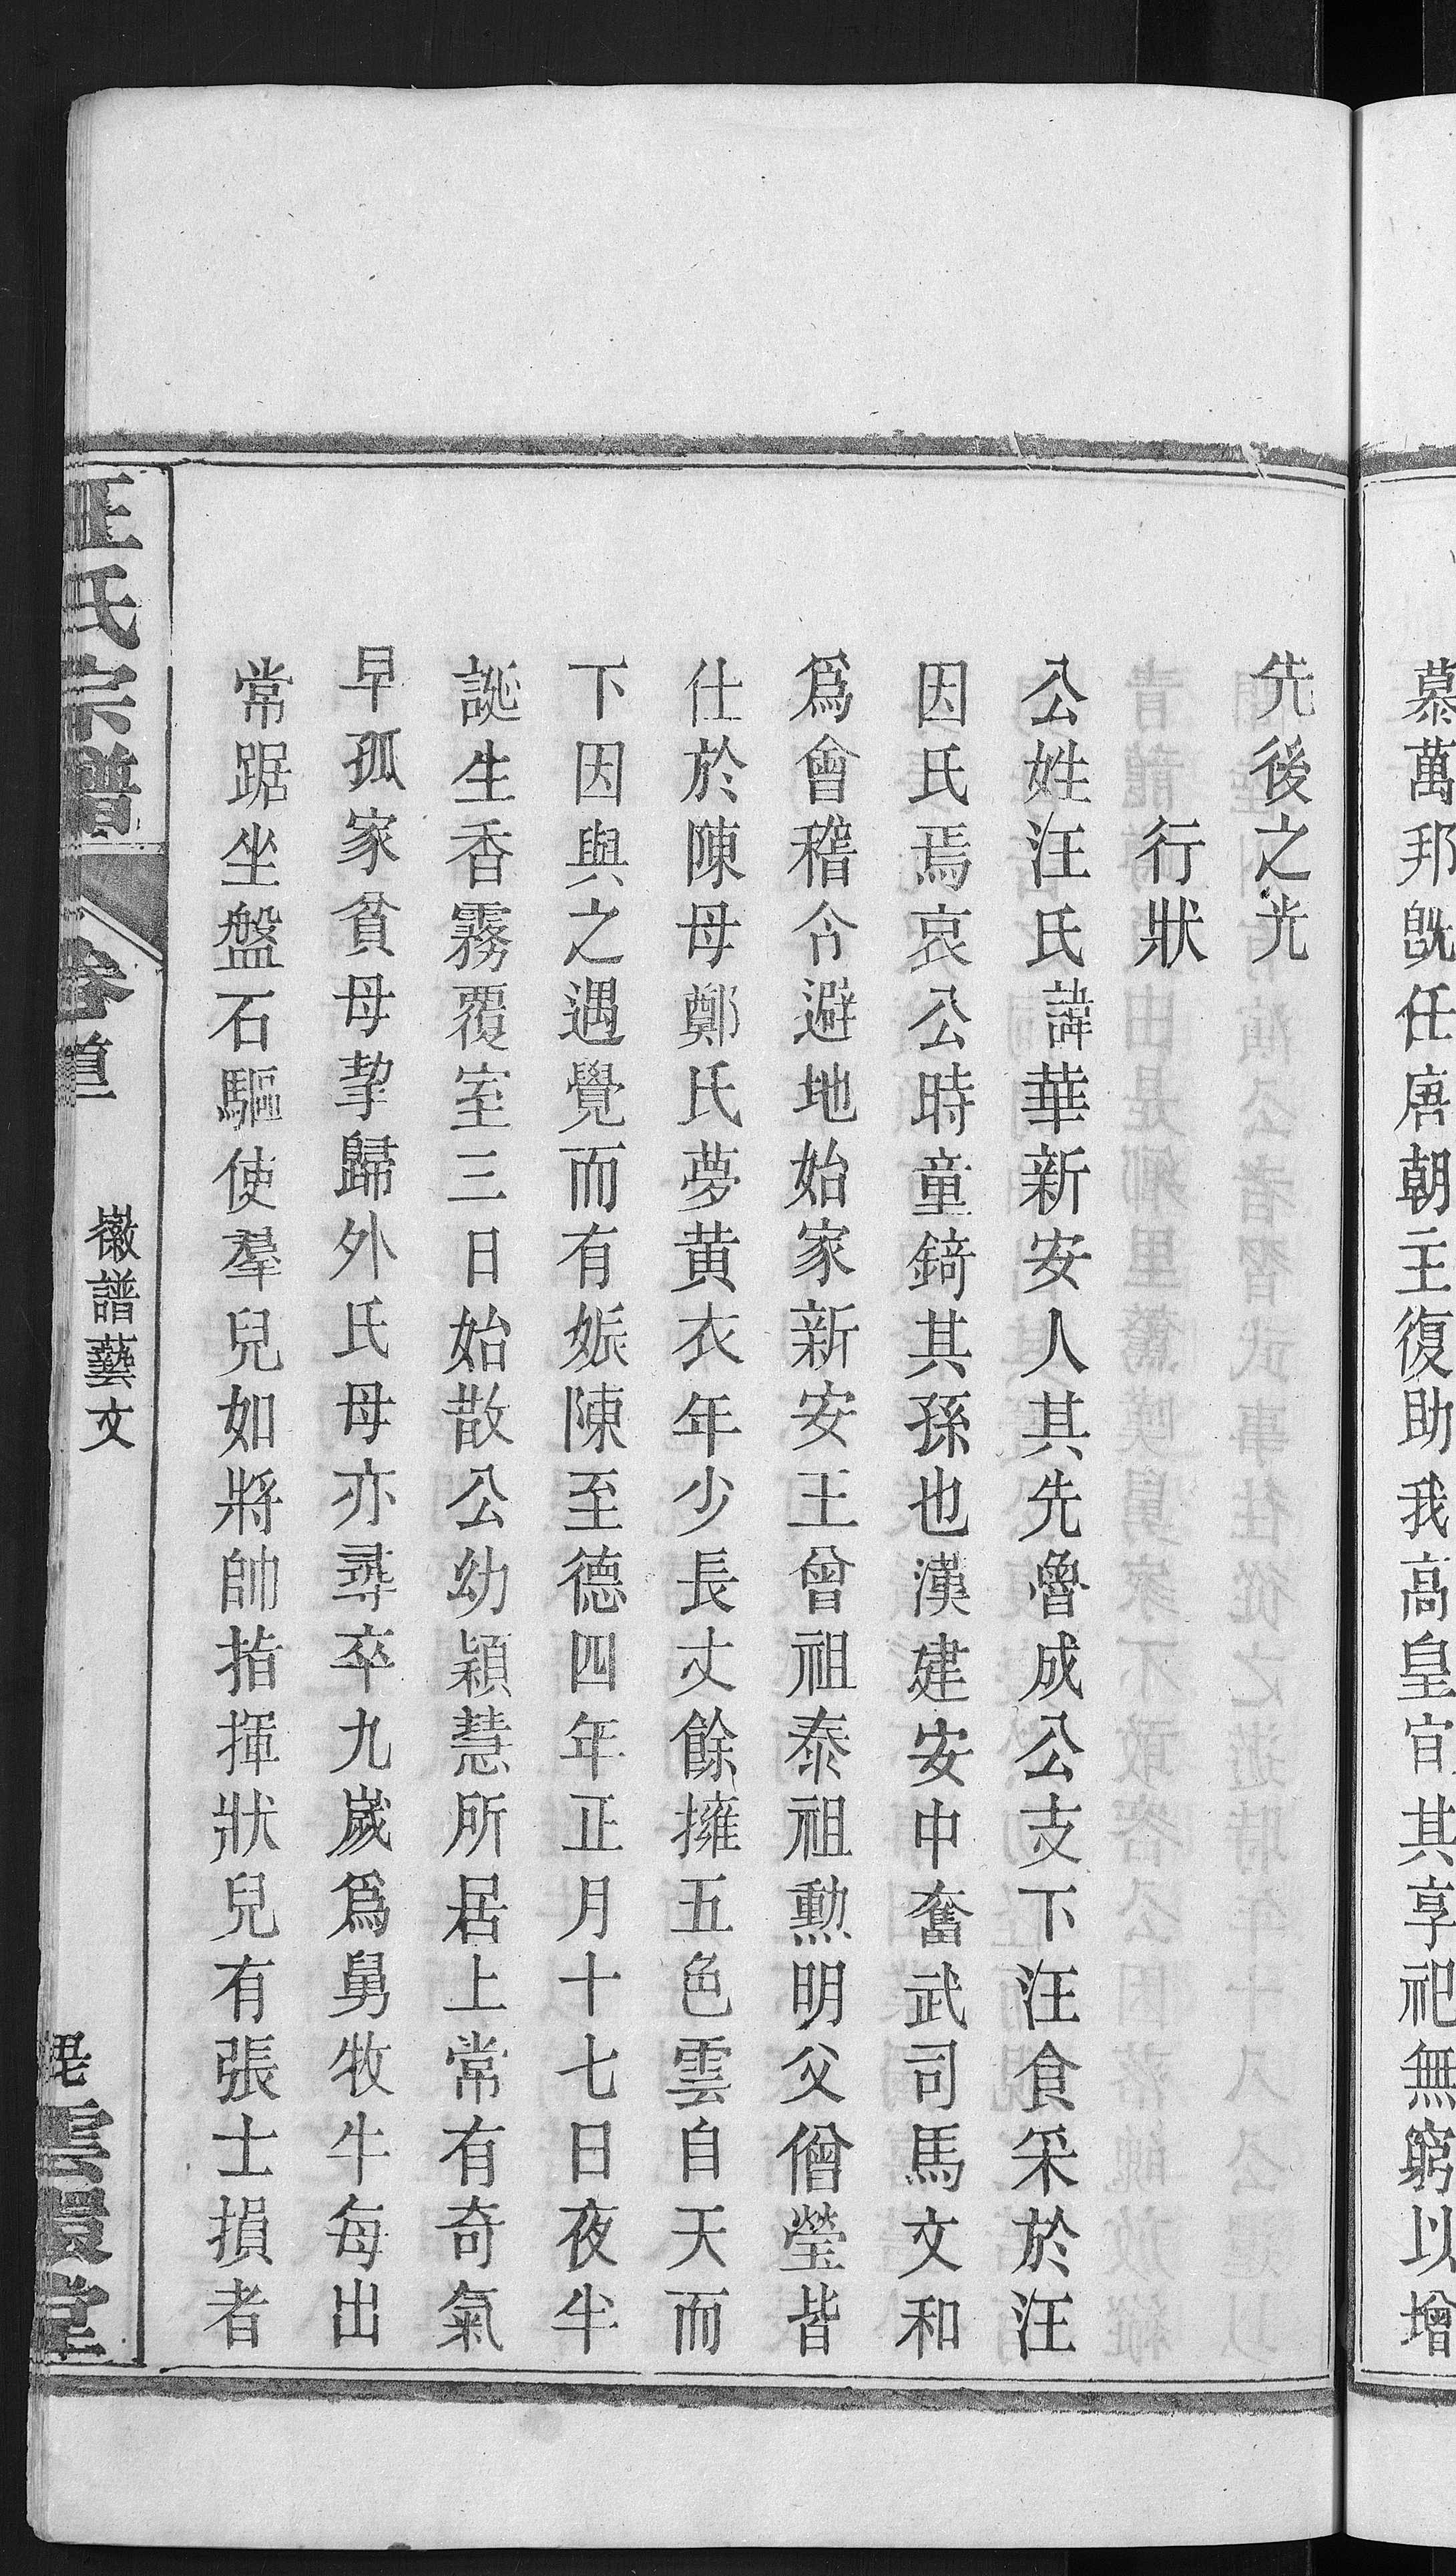 慕萬邦旣任唐朝主復助我高皇宜其享祀無窮以增
先後之光
行狀
公姓汪氏諱華新安人其先魯成公支下汪食采於汪
因氏焉哀公時童錡其孫也漢建安中奮武司馬文和
爲會稽令避地始家新安王曾祖泰祖勳明父僧瑩皆
仕於陳母鄭氏夢黄衣年少長丈餘擁五色雲自天而
下因與之遇覺而有娠陳至德四年正月十七日夜半
誕生香霧覆室三日始散公幼穎慧所居上常有奇氣
早孤家貧母挈歸外氏母亦尋卒九歲爲舅牧牛每出
常踞坐盤石驅使羣兒如將帥指揮狀兒有張士損者
汪氏宗譜
卷首
徽譜藝文
雲環堂